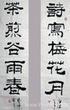 詩寫梅花月
茶煎谷雨春